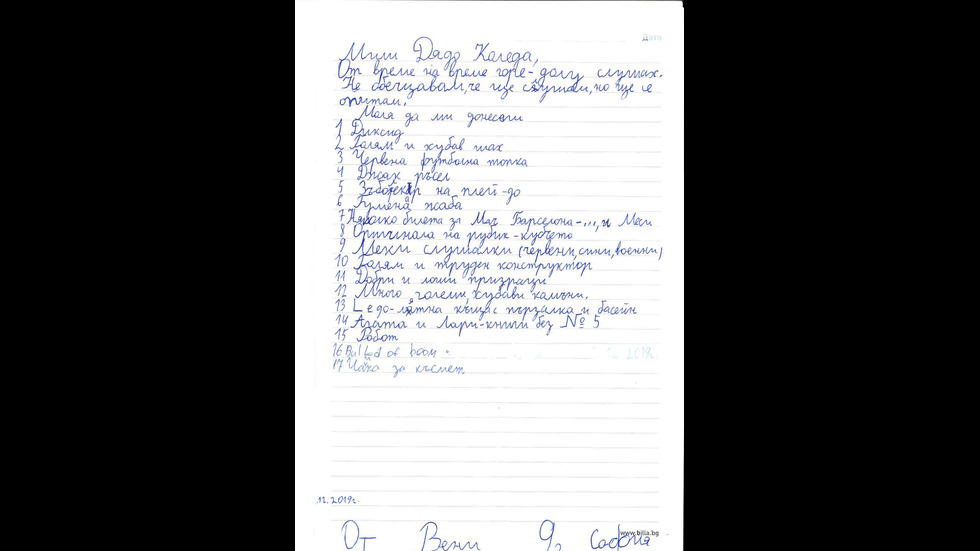 Дата
Мили Дядо Коледа,
От време на време горе-долу слушах.
Не обещавам, че ще слушам, но ще се
опитам.
Моля да ми донесеш
1 Диксид
2 Голям и хубав шах
3 Червена футболна топка
4 Джак ръсел
5 Зъболекар на плей-до
6 Гумена жаба
7 Няколко билета за Мач Барселона-..., и Меси
8 Оригинала на рубик-кубчето
9 Меки слушалки (червени, сини, военни)
10 Голям и труден конструктор
11 Добри и лоши призраци
12 Много, големи, хубави камъни.
13 Lego-лятна къща с пързалка и басейн
14 Агата и Лари-книги без № 5
15 Робот
16 of boom
17 за късмет
12.2019г.
www.billa.bg
От Вени 9г София